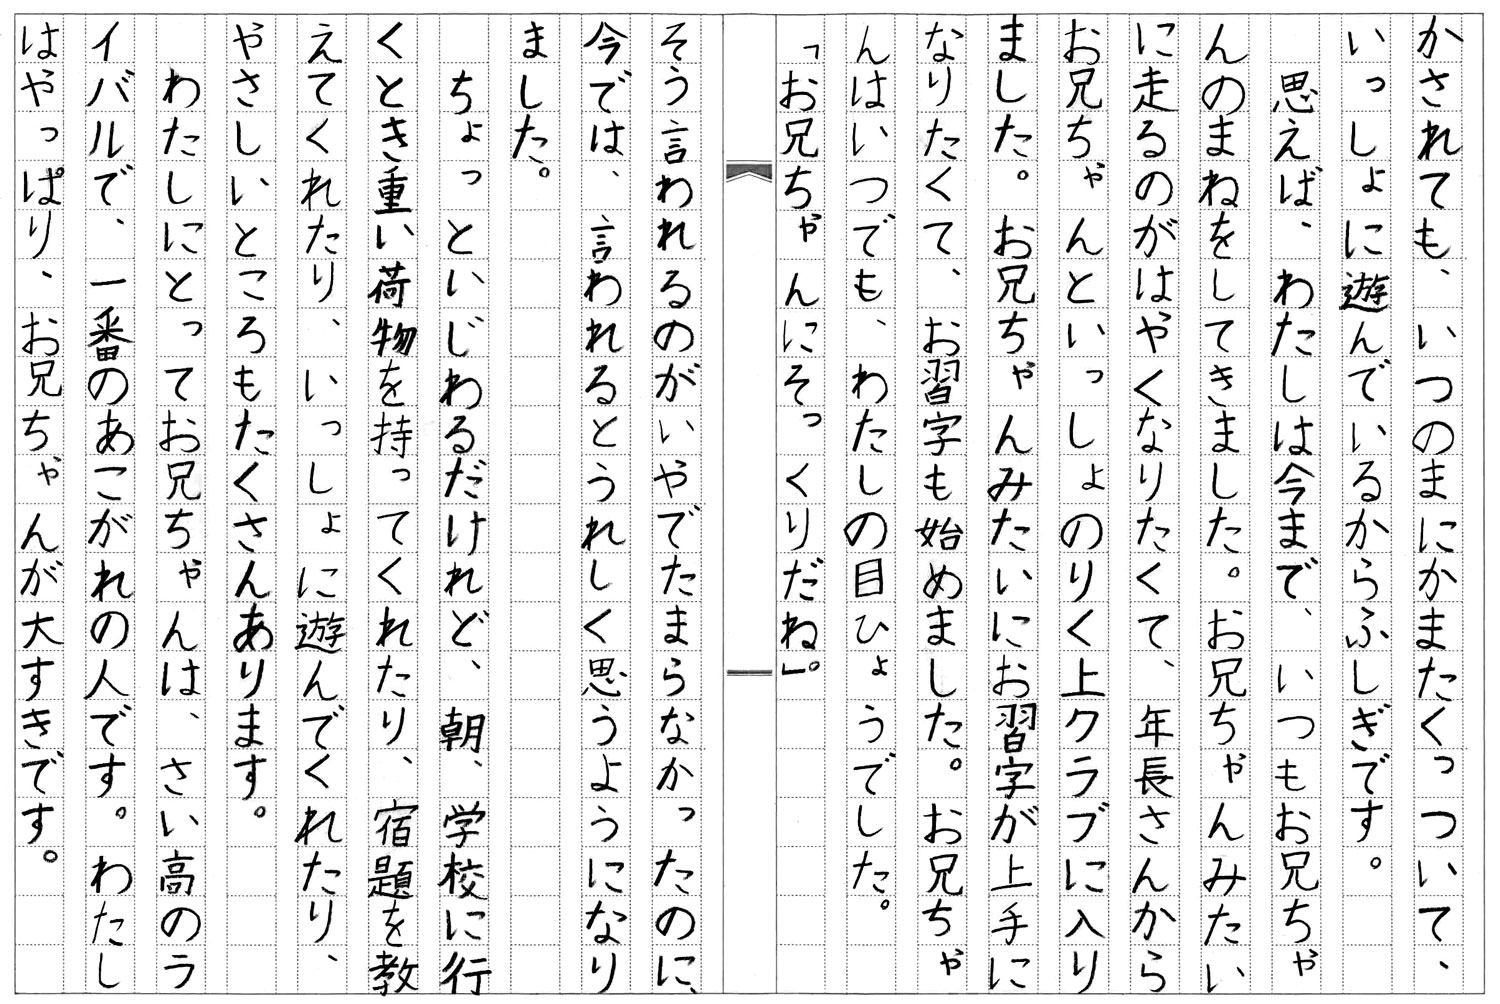 かされても、いつのまにかまたくっついて、
いっしょに遊んでいるからふしぎです。
思えば、わたしは今まで、いつもお兄ちゃ
んのまねをしてきました。お兄ちゃんみたい
に走るのがはやくなりたくて、年長さんから
お兄ちゃんといっしょのりく上クラブに入り
ました。お兄ちゃんみたいにお習字が上手に
なりたくて、お習字も始めました。お兄ちゃ
んはいつでも、わたしの目ひょうでした。
「お兄ちゃんにそっくりだね」。
そう言われるのがいやでたまらなかったのに、
今では、言われるとうれしく思うようになり
ました。
ちょっといじわるだけれど、朝、学校に行
くとき重い荷物を持ってくれたり、宿題を教
えてくれたり、いっしょに遊んでくれたり、
やさしいところもたくさんあります。
わたしにとってお兄ちゃんは、さい高のラ
イバルで、一番のあこがれの人です。わたし
はやっぱり、お兄ちゃんが大すきです。